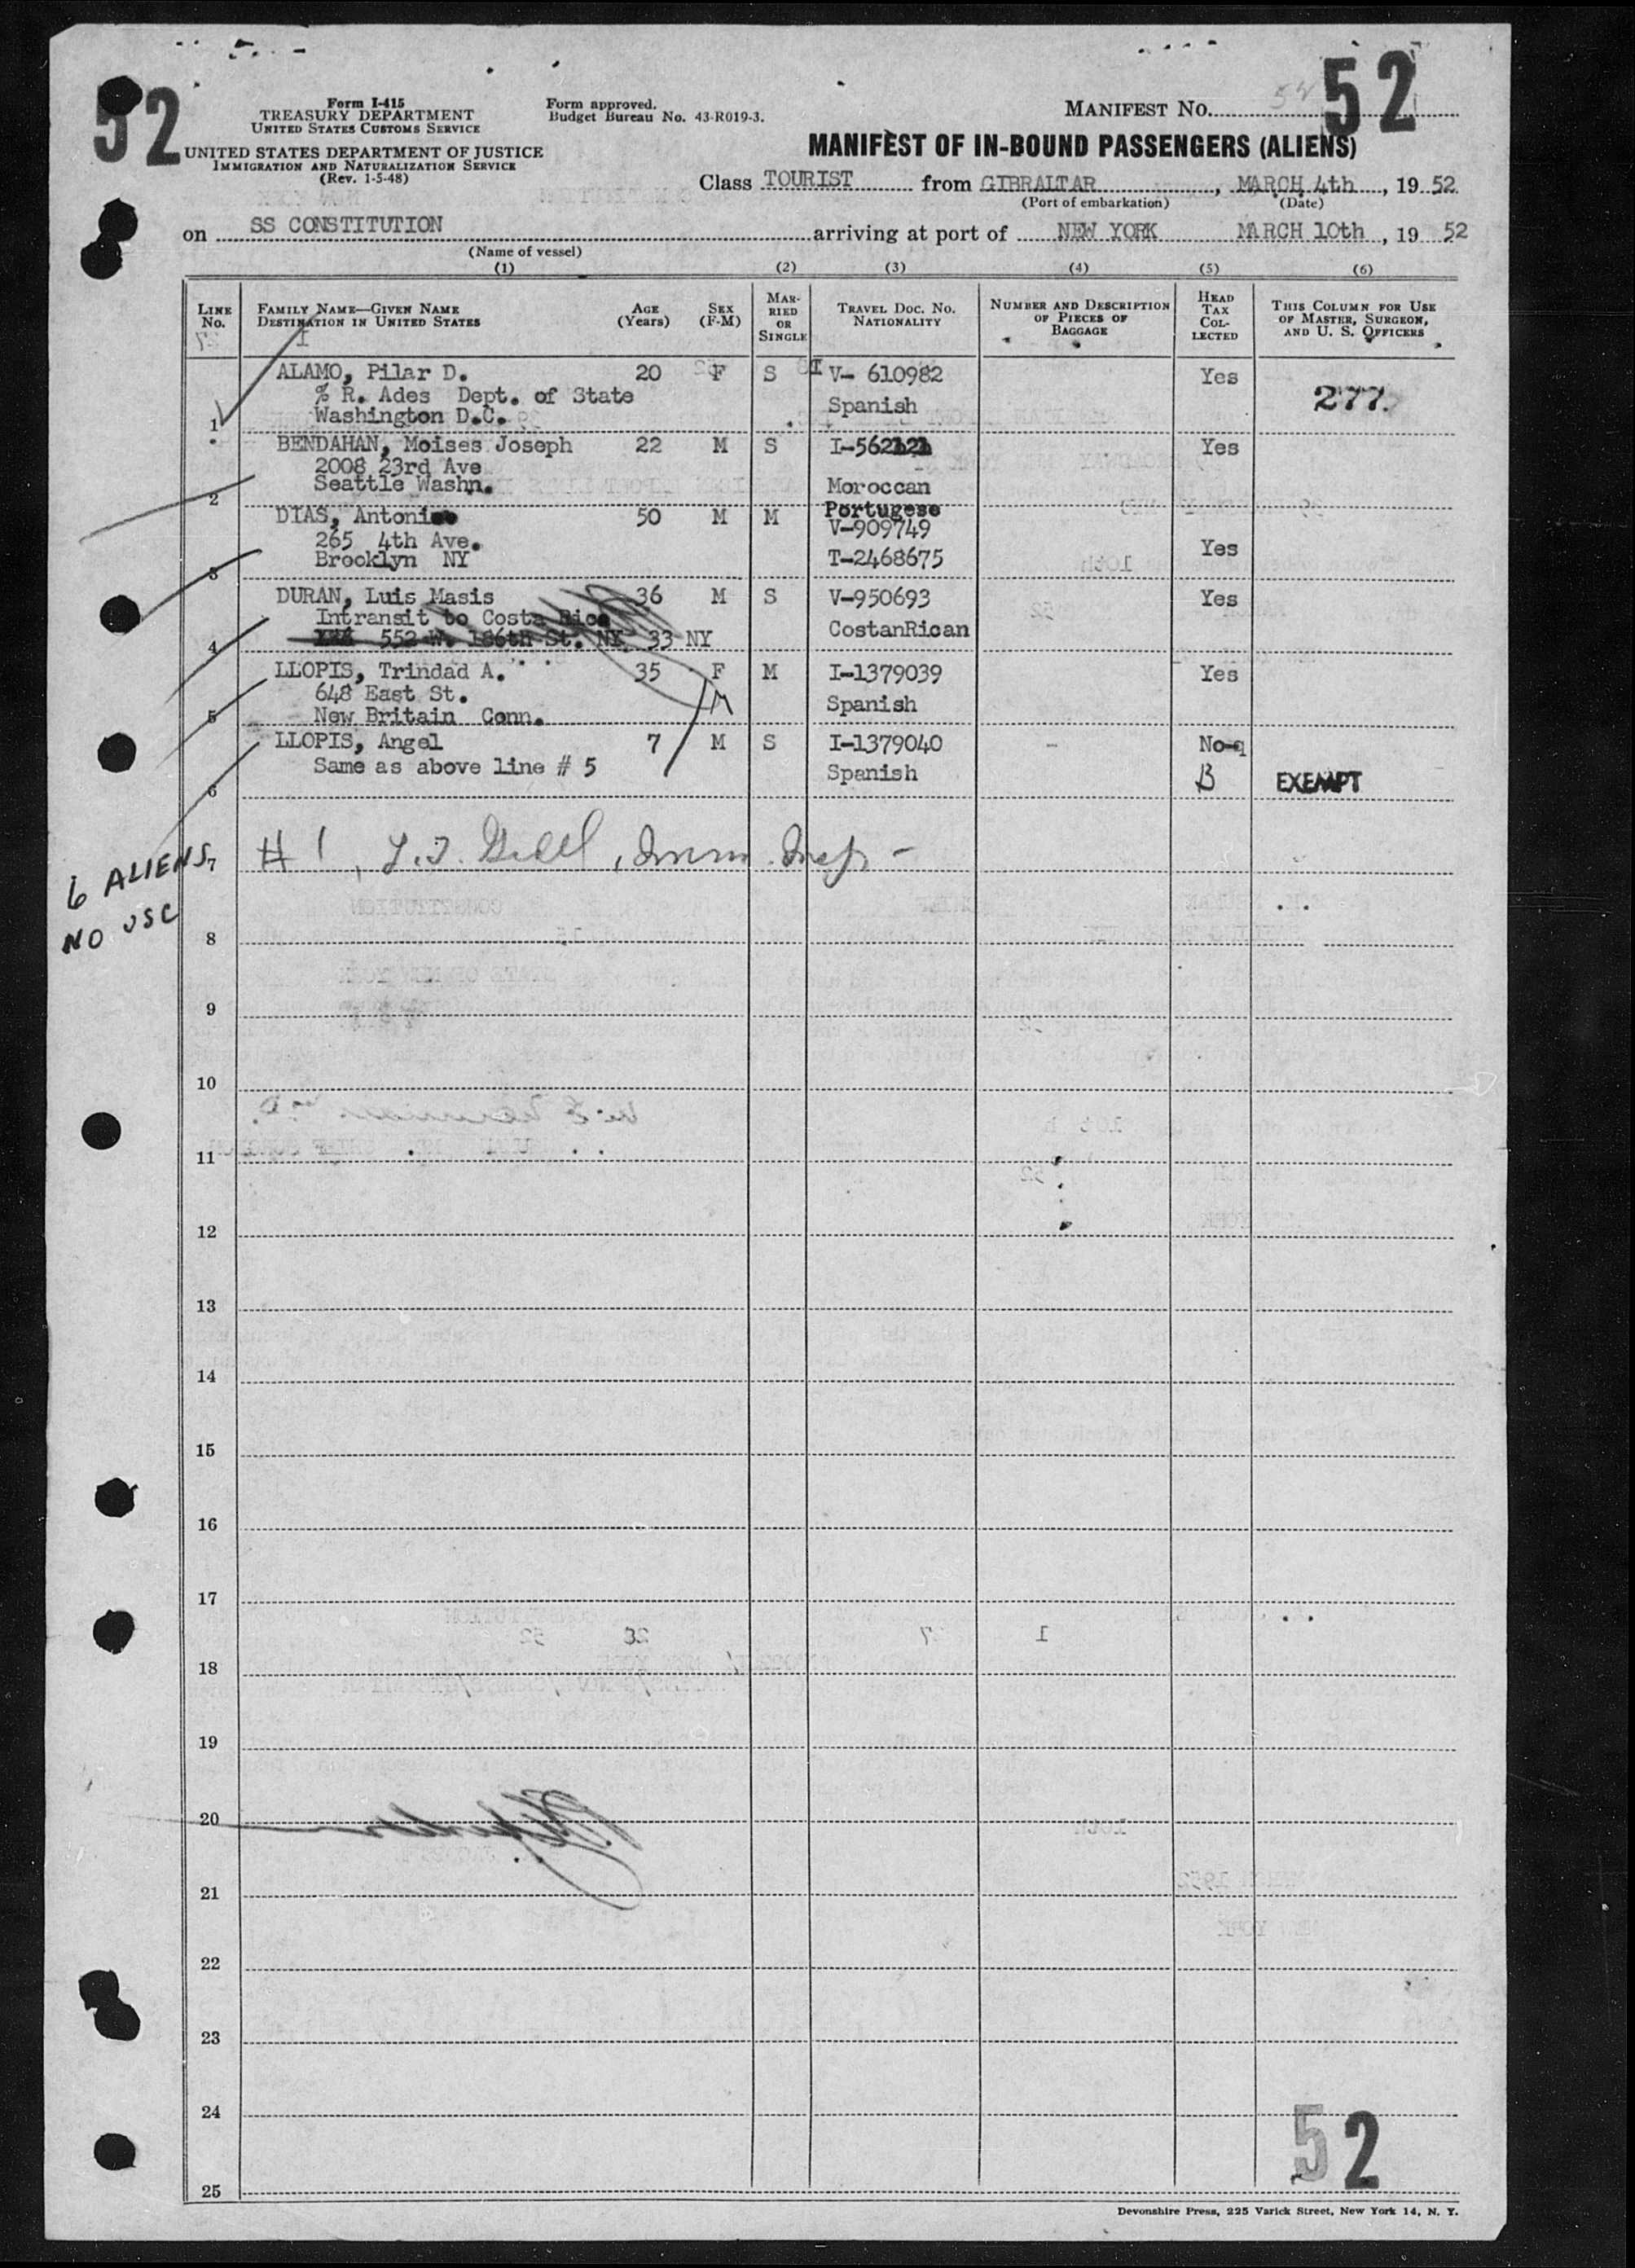 52
Form I-415
TREASURY DEPARTMENT
UNITED STATES CUSTOMS SERVICE
UNITED STATES DEPARTMENT OF JUSTICE
IMMIGRATION AND NATURALIZATION SERVICE
(Rev. 1-5-48)
Form approved.
Budget Bureau No. 43-R019-3.
MANIFEST No. 52
MANIFEST OF IN-BOUND PASSENGERS (ALIENS)
Class TOURIST from GIBRALTAR, MARCH 4th, 19 52
(Port of embarkation) (Date)
on SS CONSTITUTION arriving at port of NEW YORK MARCH 10th, 19 52
(Name of vessel)
(1) (2) (3) (4) (5) (6)
LINE No. FAMILY NAME—GIVEN NAME DESTINATION IN UNITED STATES AGE (Years) SEX (F-M) MARRIED OR SINGLE TRAVEL DOC. No. NATIONALITY NUMBER AND DESCRIPTION OF PIECES OF BAGGAGE HEAD TAX COLLECTED THIS COLUMN FOR USE OF MASTER, SURGEON, AND U. S. OFFICERS
ALAMO, Pilar D. 20 F S V- 610982 Yes
% R. Ades Dept. of State Spanish 277.
1 Washington D.C.
BENDAHAN, Moises Joseph 22 M S Yes
2008 23rd Ave
2 Seattle Washn. Moroccan
DIAS, 50 M M Portugese
V-909749
265 4th Ave. Yes
3 Brooklyn NY T-2468675
DURAN, Luis Masis 36 M S V-950693 Yes
Intransit to Costa Rica CostanRican
4 552 W. 186th St. NY 33 NY
LLOPIS, Trindad A. 35 F M I-1379039 Yes
648 East St. Spanish
5 New Britain Conn.
LLOPIS, Angel 7 M S I-1379040 - No-q
Same as above line # 5 Spanish B EXEMPT
6
6 ALIENS
NO USC
7 # 1, Imm. Insp -
8
9
10
11
12
13
14
15
16
17
18
19
20
21
22
23
24
25
52
Devonshire Press, 225 Varick Street, New York 14, N. Y.